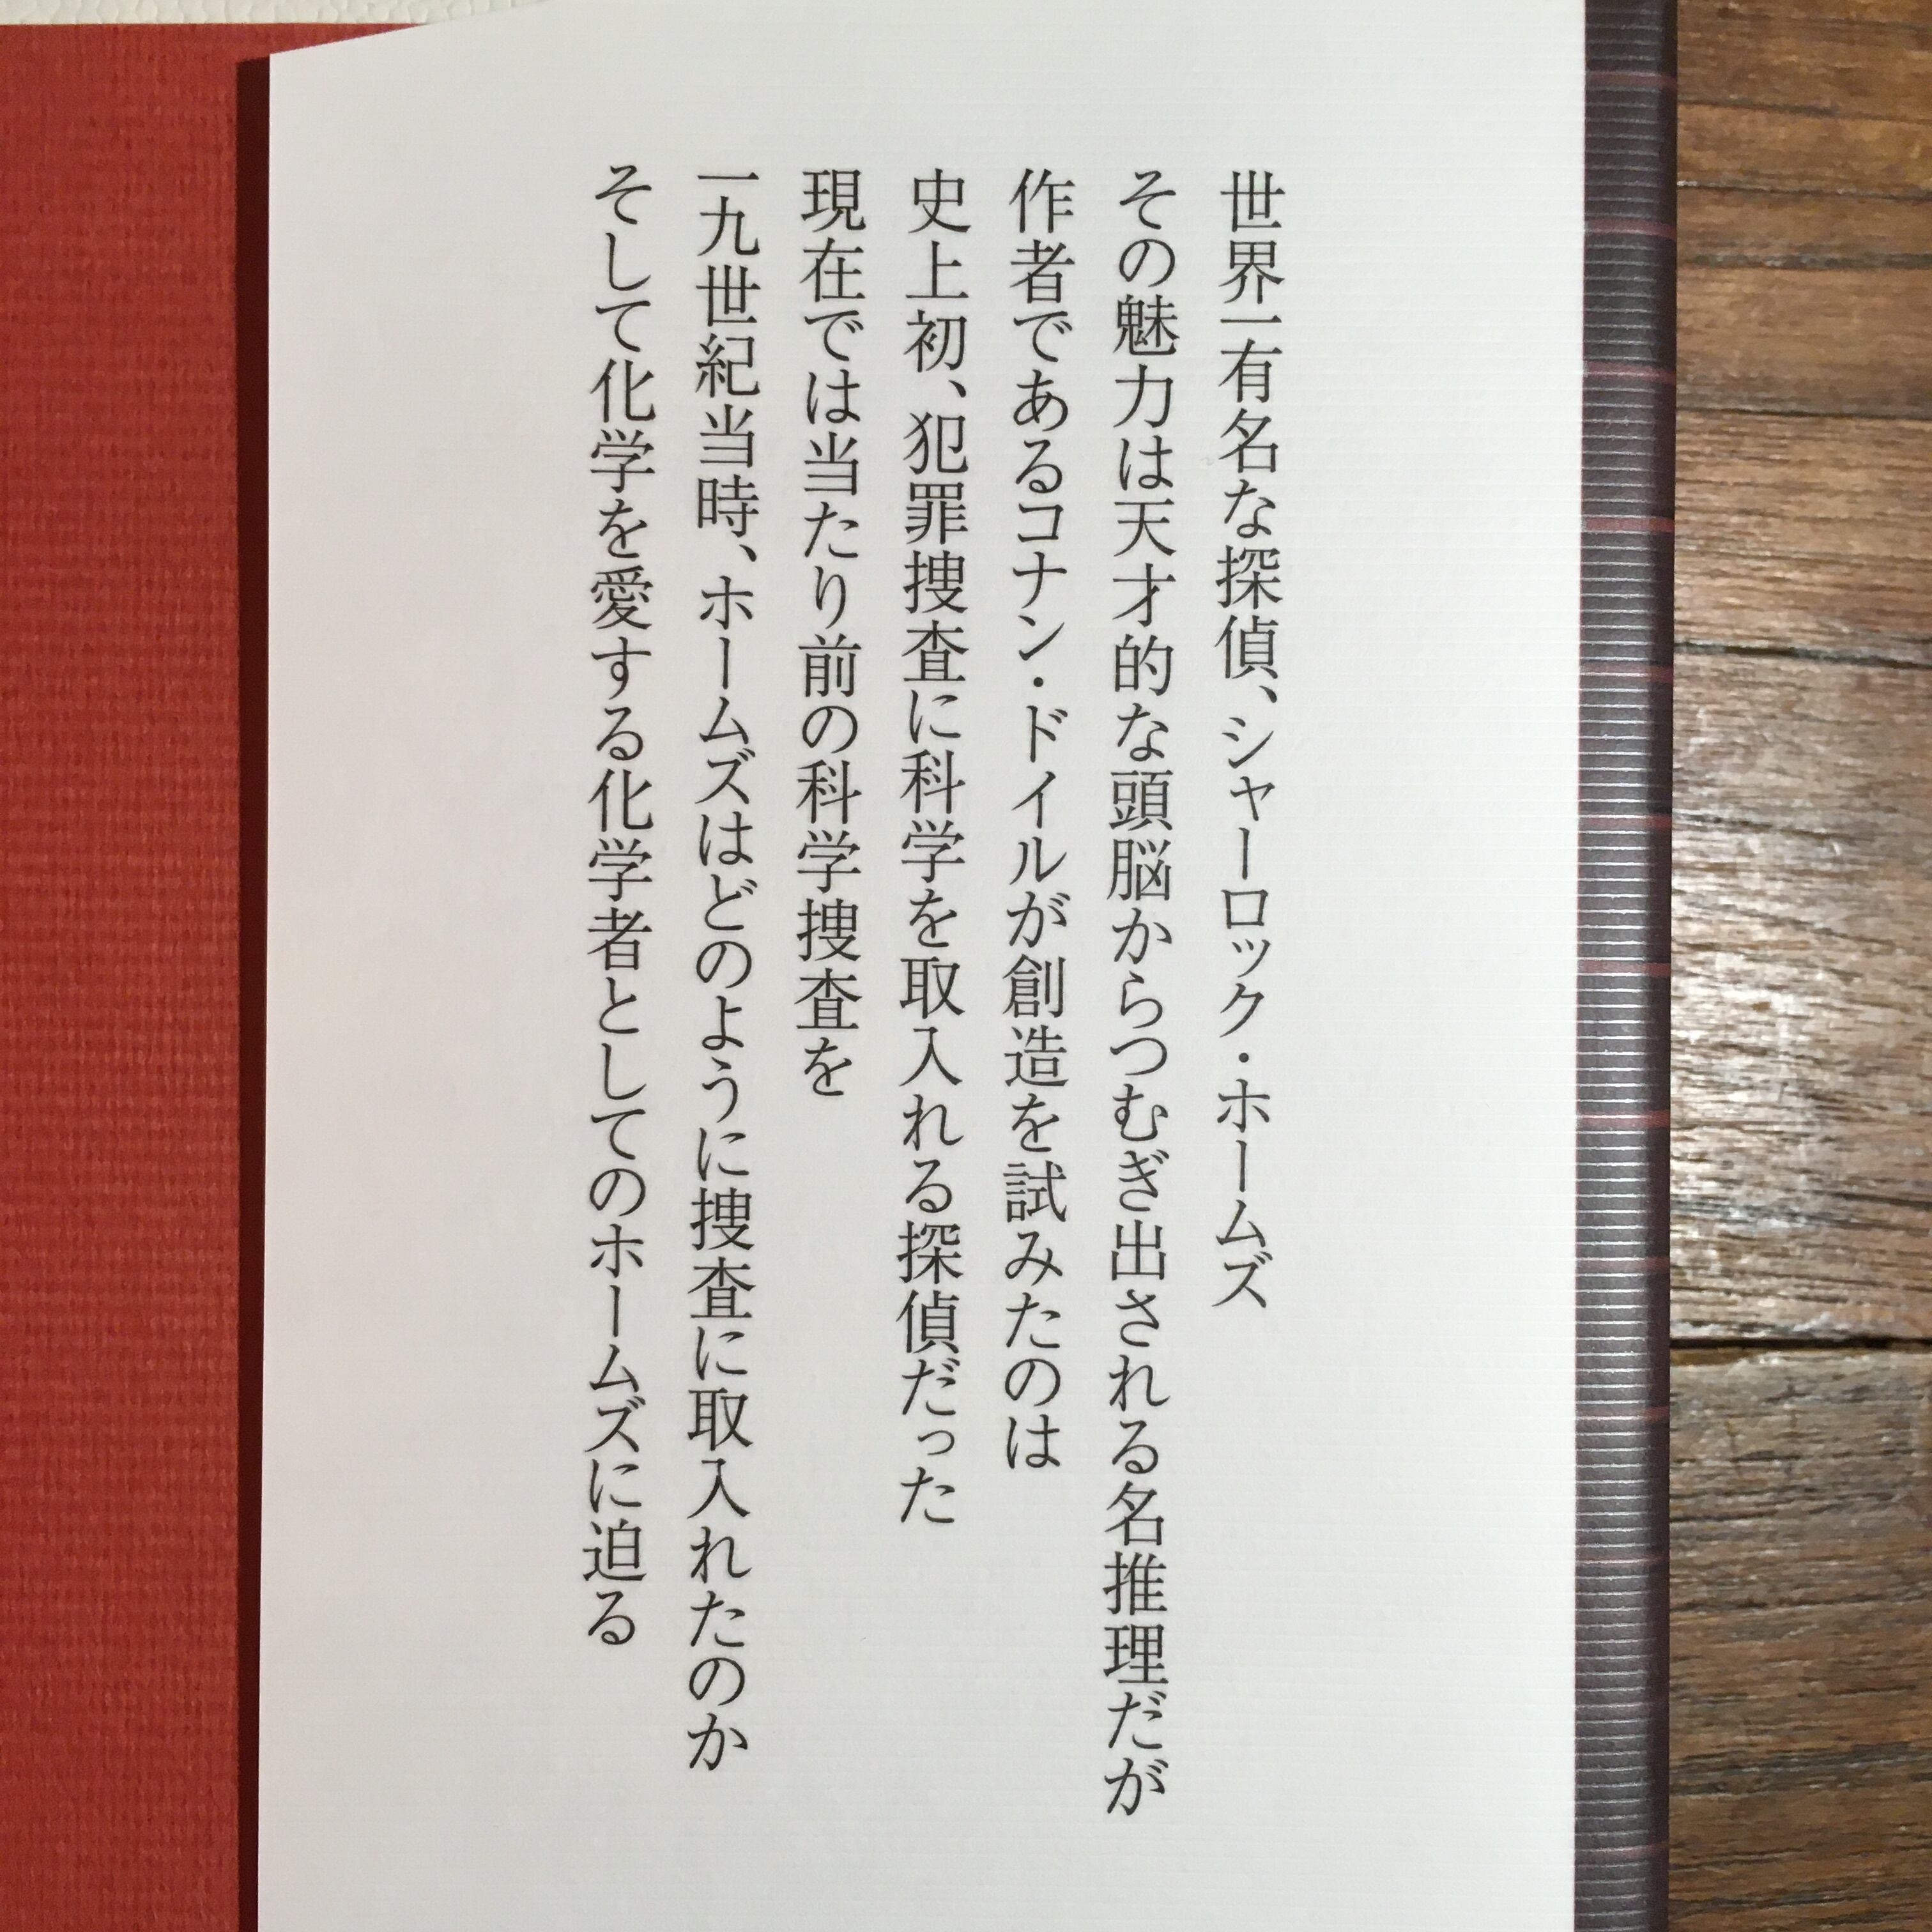 世界一有名な探偵、シャーロック・ホームズ
その魅力は天才的な頭脳からつむぎ出される名推理だが
作者であるコナン・ドイルが創造を試みたのは
史上初、犯罪捜査に科学を取入れる探偵だった
現在では当たり前の科学捜査を
一九世紀当時、ホームズはどのように捜査に取入れたのか
そして化学を愛する化学者としてのホームズに迫る